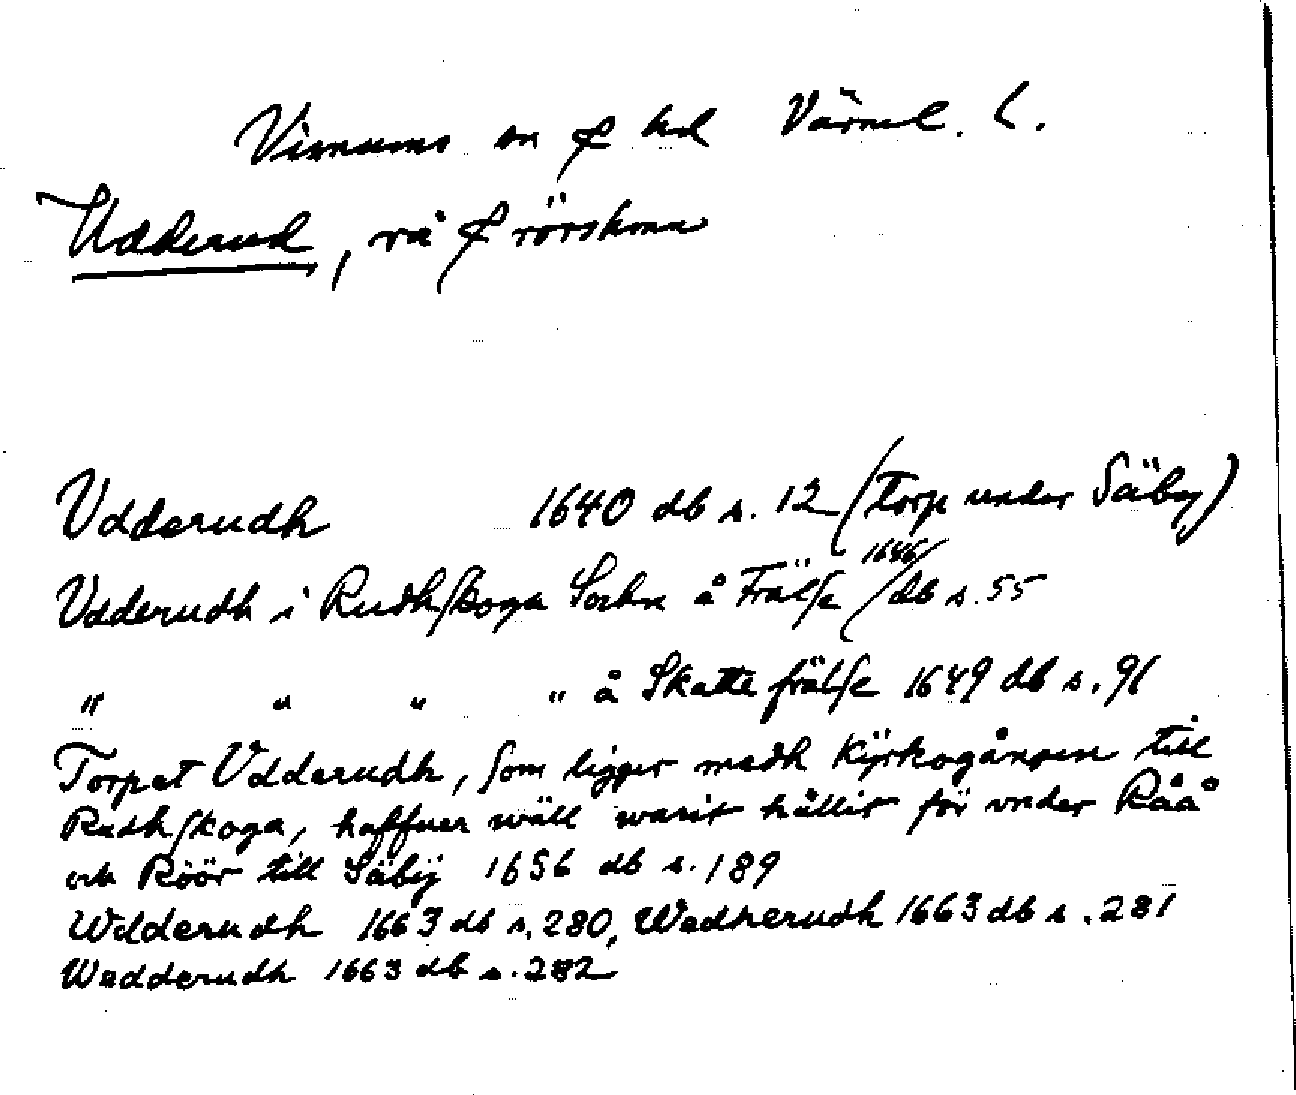 Visnums sn & hd Värml. l.
Udderud, rå & rörskoma
Vdderudh 1640 db s. 12 (Torp under Säby)
Vdderudh i Rudhskoga Sochn å Frälse 1646 db s. 55
" " " " å Skatte frälse 1649 db s. 91
Torpet Vdderudh, som ligger medh Kÿrkogången till
Rudhskoga, haffuer wäll warit hållit för vnder Råå
och Röör till Säbÿ 1656 db s. 189
Wdderudh 1663 db s. 280, Wedherudh 1663 db s. 281
Wedderudh 1663 db s. 282